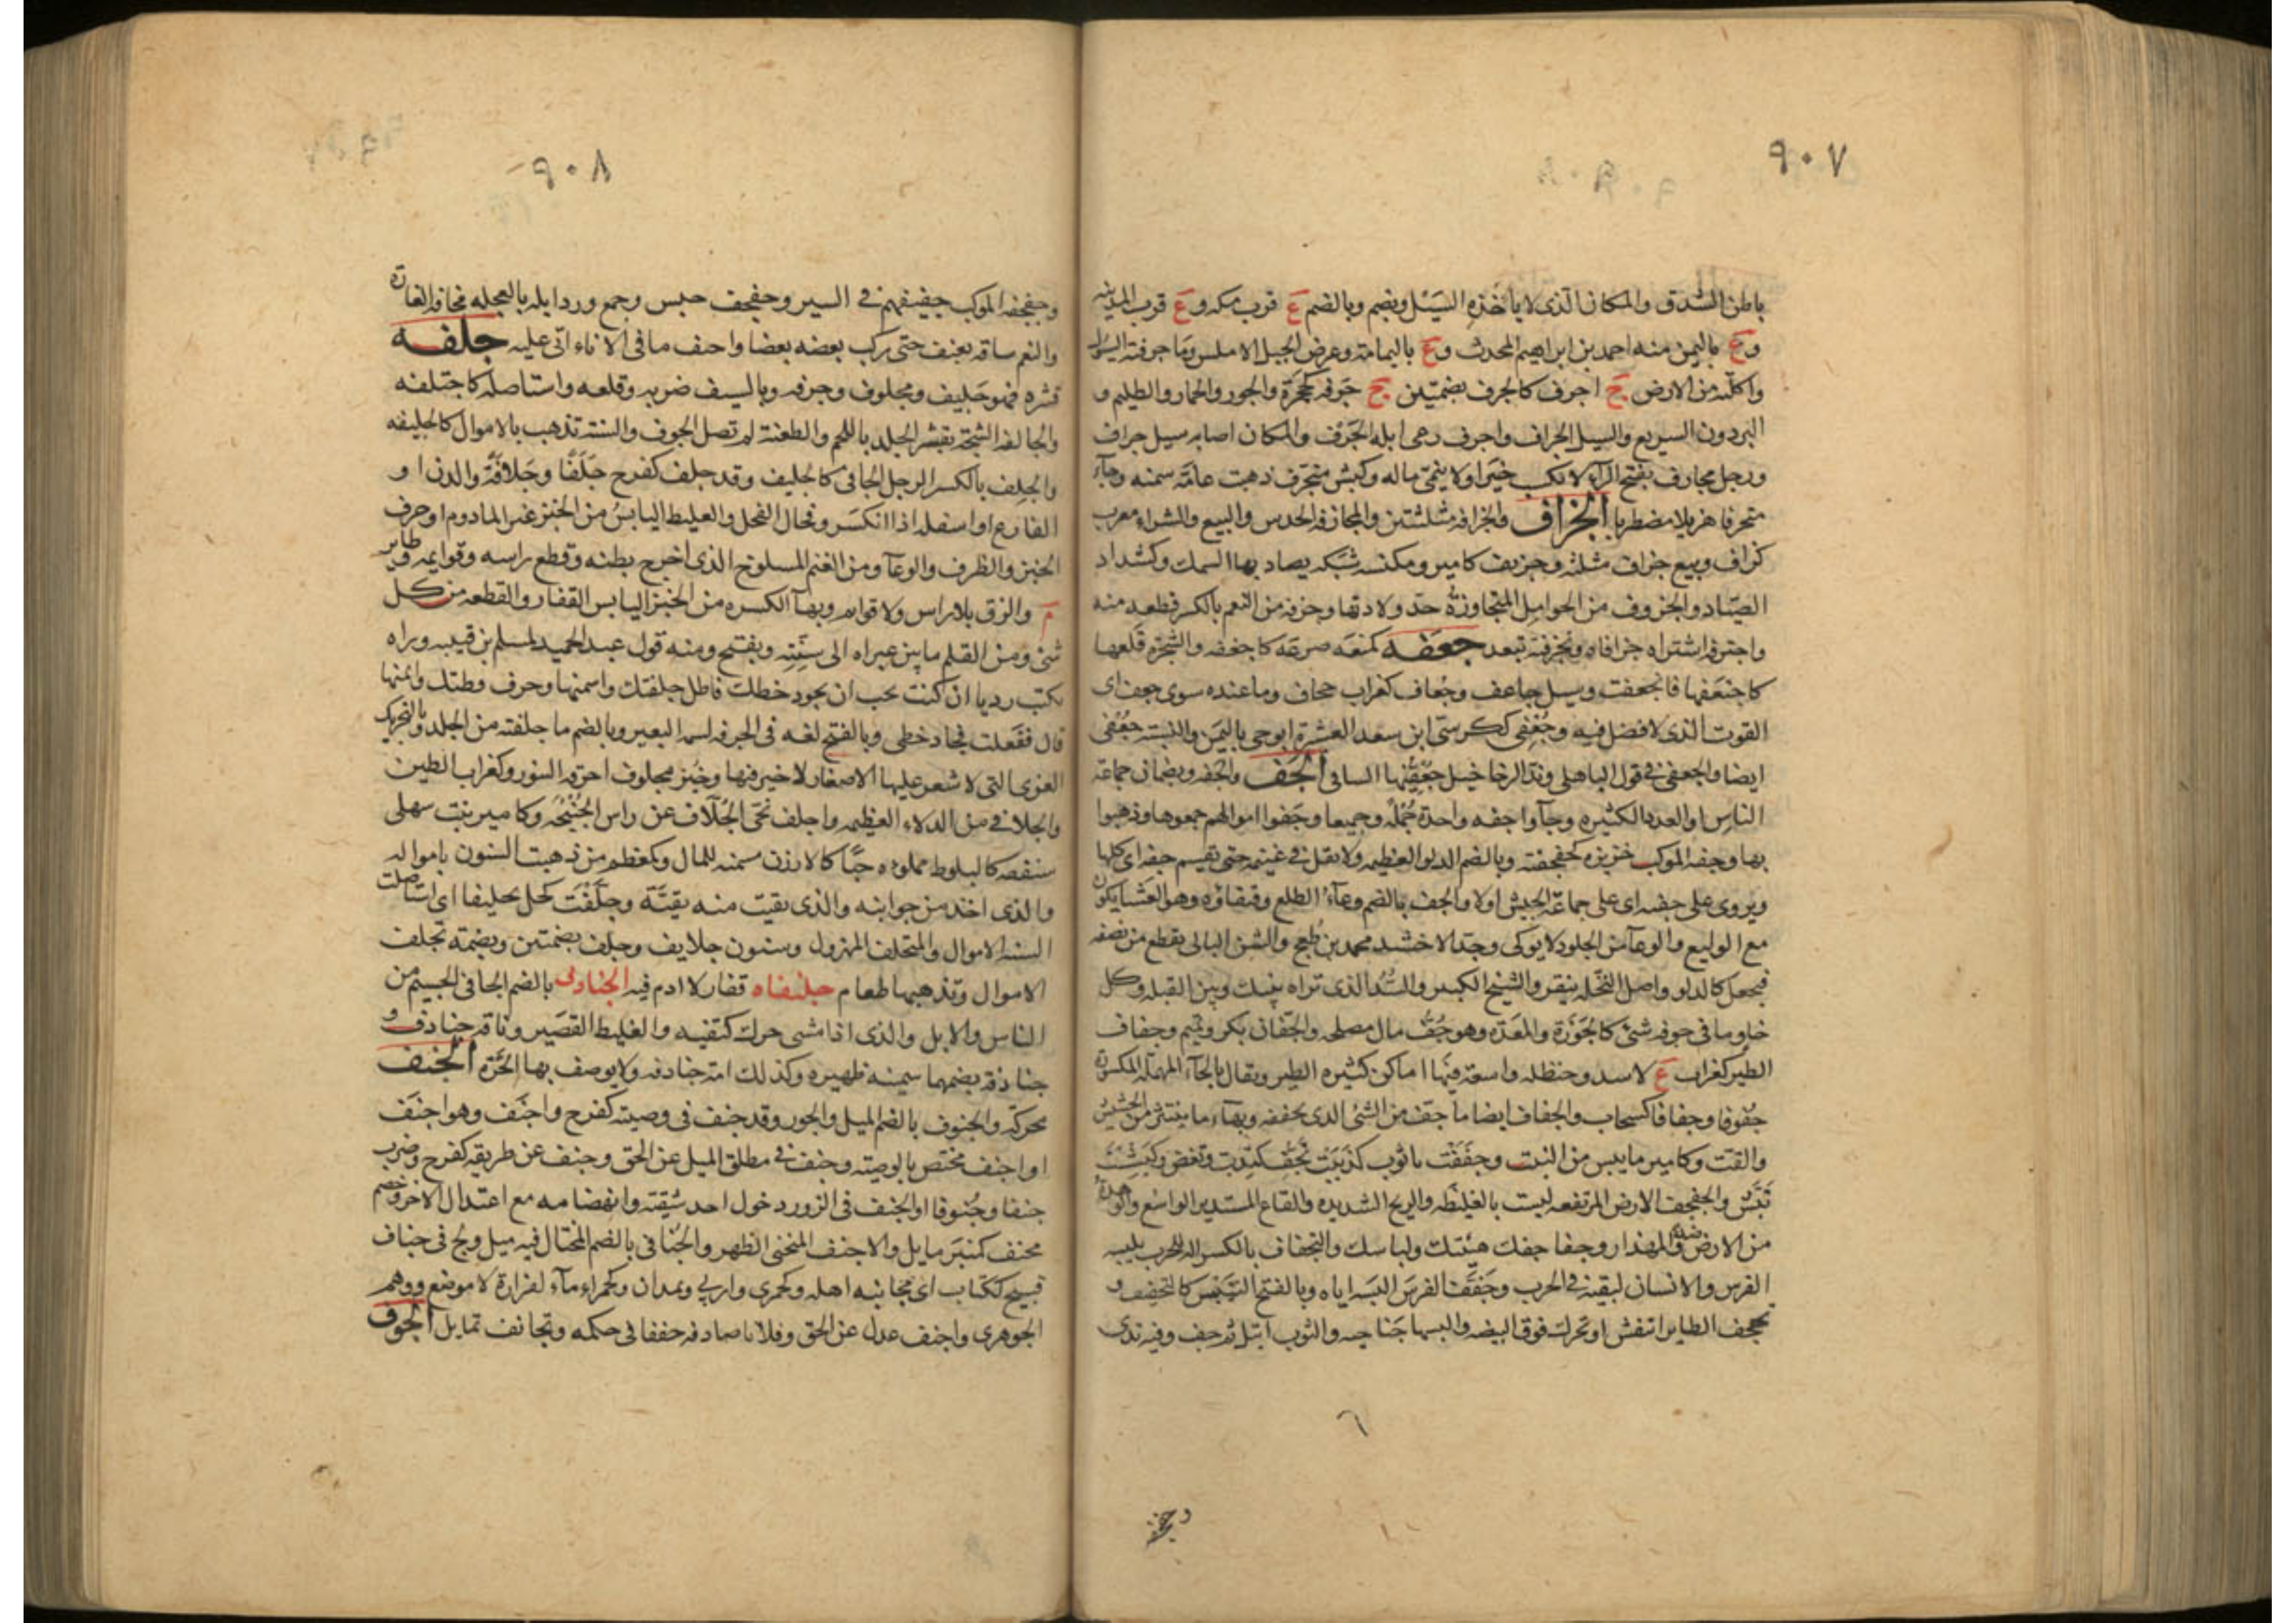 ٩٠٧
باطن الشدق والمكان الذى لا ياخذه السيل ويضم وبالضم ع قرب مكه و ع قرب المدينه
و ع باليمن منه احمد بن ابراهيم المحدث و ع باليمامة وعرض الجبل الاملس وما جرفته السيول
واكلته من الارض ج اجرف كالجرف بضمتين جج جرفه كجحرة والجور والحمار والظليم و
البرذون السريع والسيل الجراف واجرف رعى ابله الجرف والمكان اصابه سيل جراف
ورجل مجارف بفتح الرآء لا يكسب خيرا ولا ينمى ماله وكبش متجرف ذهبت عامة سمنه وجآء
متجرفا هزيلا مضطربا الجزاف والجزافه مثلثتين والمجازفه الحدس والبيع والشراء معرب
كزاف وبيع جزاف مثلثه وجزيف كامير ومكنسه شبكه يصاد بها السمك وكشداد
الصياد والجزوف من الحوامل المتجاوزة حد ولادتها وجزفه من النعم بالكسر قطعه منه
واجتزفه اشتراه جزافا وتجزف فيه تبعد جعفه كمنعه صرعه كاجعفه والشجرة قلعها
كاجتعفها فانجعفت وسيل جاعف وجعاف كغراب جحاف وما عنده سوى جعف اى
القوت الذى لا فضل فيه وجعفى ككرسى ابن سعد العشيرة ابو حى باليمن والنسبة جعفى
ايضا والجعفى فى قول الباهلى وبذ الرخا خيل جعفيها السافى الجف والجفه ويضمان جماعة
الناس او العدد الكثيره وجآوا جفه واحدة جملة وجميعا وجفوا اموالهم جمعوها وذهبوا
بها وجفه الموكب هزيزه كجفجفته وبالضم الدلو العظيمه ولا نفل فى غنيمه حتى تقسم جفه اى كلها
ويروى على جفه اى على جماعة الجيش اولا والجف بالضم وعآء الطلع وقيقاؤه وهو الغشا يكون
مع الوليع والوعآ من الجلود لا يوكى وجد الاخشيد محمد بن طغج والشن البالى يقطع من نصفه
فيجعل كالدلو واصل النخله ينقر والشيخ الكبير والسد الذى تراه بينك وبين القبله وكل
خاو ما فى جوفه شئ كالجوزة والمغدة وهو جف مال مصلحه والجفان بكر وتميم وجفاف
الطير كغراب ع لاسد وحنظله واسعة فيها اماكن كثيره الطير ويقال بالحآء المهملة المكسورة
جفوفا وجفافا كسحاب والجفاف ايضا ما جف من الشئ الذى تجففه وبهآء ما ينتثر من الحشيش
والقت وكامير ما يبس من النبت وجففت يا ثوب كدببت تجف كتدب وتعض وكبششت
تبش والجفجف الارض المرتفعه ليست بالغليظه والريح الشديده والقاع المستدير الواسع والوهدة
من الارض ضد والمهذار وجفا جفك هيئتك ولباسك والتجفاف بالكسر اله للحرب يلبسه
الفرس والانسان ليقيه فى الحرب وجفف الفرس البسه اياه وبالفتح التيبيس كالتجفيف و
تجفجف الطاير انتفش او تحرك فوق البيضه والبسها جناحيه والثوب ابتل ثم جف وفيه ندى
٦
وجفجفه
٩٠٨
وجفجفه الموكب جفيفهم فى السير وجفجف حبس وجمع ورد ابله بالعجله مخافة الغارة
والنعم ساقه بعنف حتى ركب بعضه بعضا واجتف ما فى الاناء اتى عليه جلفه
قشره فهو جليف ومجلوف وجرفه وبالسيف ضربه وقلعه واستاصله كاجتلفه
والجالفه الشجة تقشر الجلد باللحم والطعنة لم تصل الجوف والسنة تذهب بالاموال كالجليفه
والجلف بالكسر الرجل الجافى كالجليف وقد جلف كفرح جلفا وجلافة والدن او
الفارغ او اسفله اذا انكسر وفحال النخل والغليظ اليابس من الخبز غير المادوم او حرف
الخبز والظرف والوعآ ومن الغنم المسلوخ الذى اخرج بطنه وقطع راسه وقوايمه وطاير
م والزق بلا راس ولا قوايم وبهآ الكسره من الخبز اليابس القفار والقطعه من كل
شئ ومن القلم ما بين مبراه الى سنته ويفتح ومنه قول عبد الحميد لسلم بن قتيبه وراه
يكتب رديا ان كنت تحب ان يجود خطك فاطل جلفتك واسمنها وحرف قطتك وايمنها
قال ففعلت فجاد خطى وبالفتح لغه فى الجرفه لسمه البعير وبالضم ما جلفته من الجلد وبالتحريك
المعزى التى لا شعر عليها الا صغار لا خير فيها وخبز مجلوف احرقه التنور وكغراب الطين
والجلافى من الدلاء العظيمه واجلف نحى الجلاف عن راس الجنبخه وكامير نبت سهلى
سنفه كالبلوط مملوه حبا كالارزن مسمنه للمال وكمعظم من ذهبت السنون باموا له
والذى اخذ من جوانبه والذى بقيت منه بقية وجلفت كحل تجليفا اى استاصلت
السنة الاموال والمتجلف المهزول وسنون جلايف وجلف بضمتين وبضمه تجلف
الاموال وتذهبها طعام جلنفاه قفار لا ادم فيه الجنادف بالضم الجافى الجسيم من
الناس والابل والذى اذا مشى حرك كتفيه والغليظ القصير وناقة جنادف و
جنادفه بضمهما سمينه ظهيره وكذلك امة جنادفه ولا يوصف بها الحرة الجنف
محركة والجنوف بالضم الميل والجور وقد جنف فى وصيته كفرح واجنف وهو اجنف
او اجنف مختص بالوصية وجنف فى مطلق الميل عن الحق وجنف عن طريقه كفرح وضرب
جنفا وجنوفا او الجنف فى الزور دخول احد شقيه وانهضامه مع اعتدال الاخر وخصم
مجنف كمنبر مايل والاجنف المنحنى الظهر والجنافى بالضم المختال فيه ميل ولج فى جناف
قبيح ككتاب اى مجانبه اهله وكجمزى واربى ويمدان وكحمراء مآء لفزارة لا موضع ووهم
الجوهرى واجنف عدل عن الحق وفلانا صادفه جنفا فى حكمه وتجانف تمايل الجوف